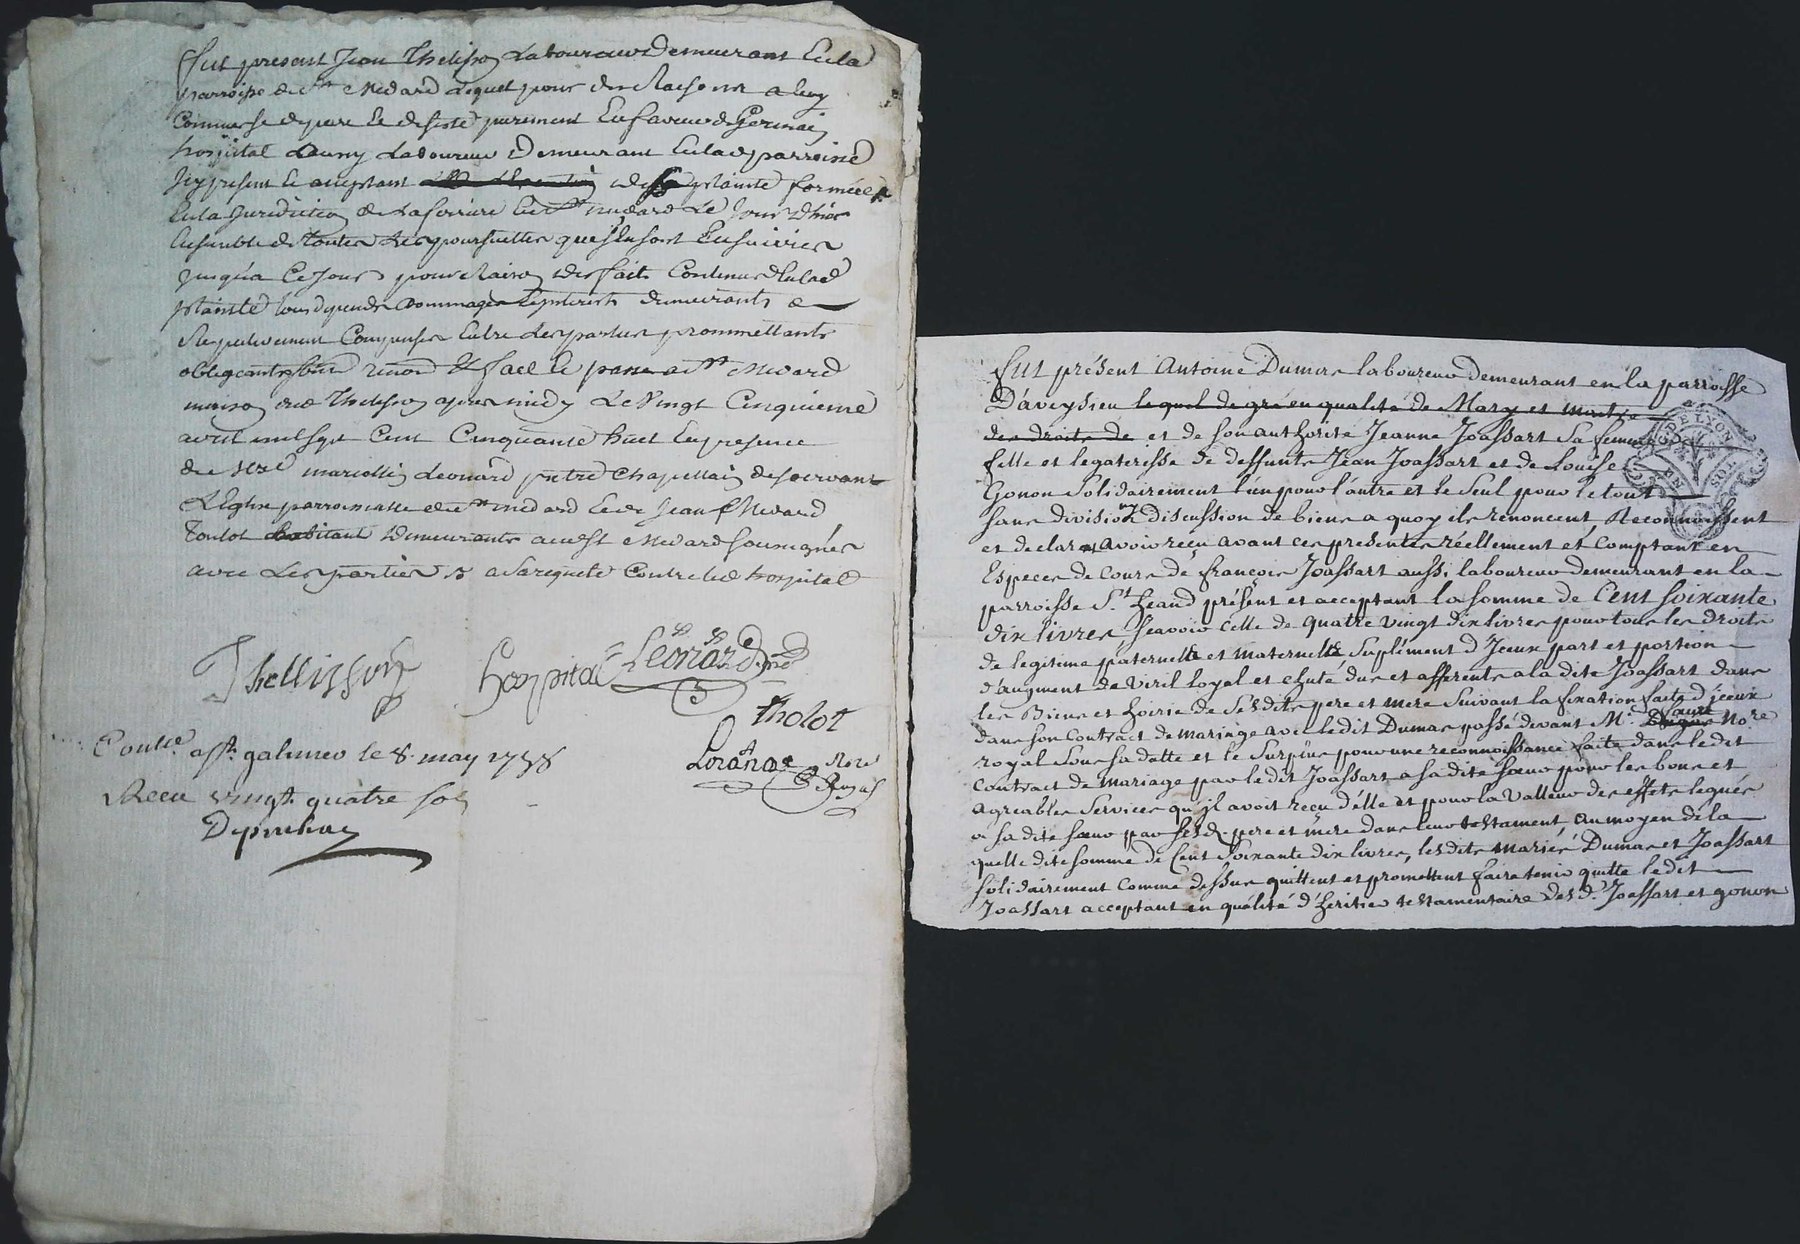 fut present Jean Thelisson Laboureur Demeurant En la
parroisse de St Medard Lequel pour des Raisons a luy
Connues se depare Et desiste purement En faveur de Germain
hospital dauny Laboureur Demeurant En lad parroisse
Icy present Et acceptant de la plainte formée
En la Juridiction de Laforiere Et St medard Le Jour Dhier
Ensemble de toutes Les poursuittes qui sen sont Ensuivies
Jusqu'a Ce Jour pour Raison des faits Contenus En lad
plainte tous depends dommages Interests demeurants
Respectivement Compensés Entre Les parties promettants
obligeants renon & fait Et passé a St Medard
maison dud Thelisson apres midy Le Vingt Cinquieme
avril mil sept Cent Cinquante huit En presence
de Mre Leonard pretre Chapellain desservant
L'Eglise parroissialle de St medard Et de Jean Medard
Toulot habitant Demeurants aud St Medard soussignés
avec Les parties a la requete Contre led hospital
Thellisson hospital Leonard ptre
tholot
Contlé a St galmier le 8 may 1758
Recu vingt quatre sols
Depuchay
Fut présent Antoine Dumas laboureur demeurant en la parroisse
D'aveysieu lequel de gré en qualité de Mary et maitre
des droits de et de son authorité Jeanne Joassart Sa femme
fille et legateresse de deffunts Jean Joassart et de Louise
Gonon Solidairement l'un pour l'autre et le Seul pour le tout
G. DE LYON
sans division ny discussion de biens a quoy ils renoncent, Reconnoissent
et declarent avoir reçu avant ces presentes réellement et Comptant en
Especes de cours de françois Joassart aussi laboureur demeurant en la
parroisse St heand présent et acceptant la somme de Cent soixante
dix livres, scavoir celle de quatre vingt dix livres pour tous les droits
de legitime paternelle et maternelle Suplément d'Jceux part et portion
d'augment de viril loyal et chuté dus et afferents a la dite Joassart dans
les Biens et hoirie de Sesdits pere et mere Suivant la fixation faite d'jceux
dans son Contract de mariage avec ledit Dumas passé devant Me. faure Nore
royal Sous sa datte et le Surplus pour une reconnoissance faite dans ledit
Contract de mariage par ledit Joassart a sa dite sœur pour les bons et
agreables Services qu'jl avoit reçu d'elle et pour la valleur des effets legués
a sa dite sœur par sesd. pere et mere dans leur testament, au moyen de la
quelle dite somme de Cent Soixante dix livres, lesdits mariés Dumas et Joassart
solidairement comme dessus quittent et promettent faire tenir quitte ledit
Joassart acceptant en qualité d'heritier testamentaire desd. Joassart et gonon